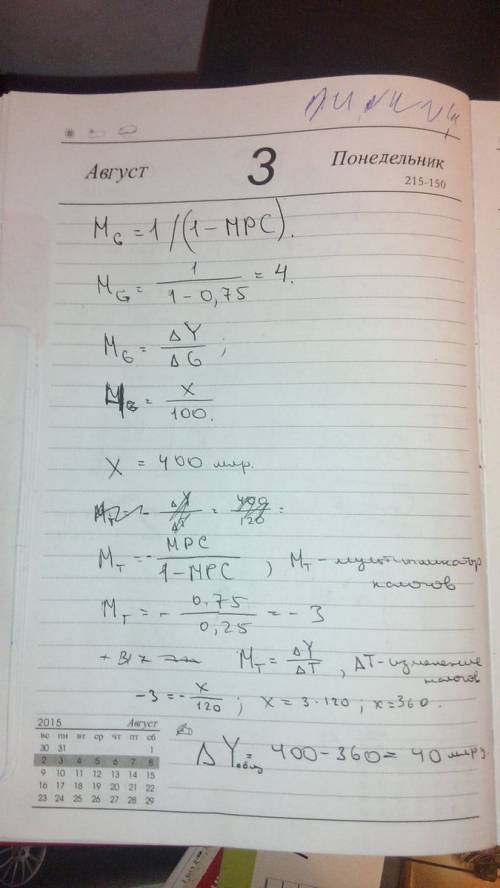 Август
3
Понедельник
215-150
M_G = 1 / (1 - MPC).
M_G = 1 / (1 - 0,75) = 4.
M_G = ΔY / ΔG ;
M_G = X / 100.
X = 400 млр.
M_T = - MPC / (1 - MPC) , M_T - мультипликатор налогов
M_T = - 0,75 / 0,25 = - 3
M_T = ΔY / ΔT , ΔT - изменение налогов
-3 = - X / 120 ; X = 3 · 120 ; X = 360.
ΔY общ = 400 - 360 = 40 млрд.
2015 Август
вс пн вт ср чт пт сб
30 31 1
2 3 4 5 6 7 8
9 10 11 12 13 14 15
16 17 18 19 20 21 22
23 24 25 26 27 28 29